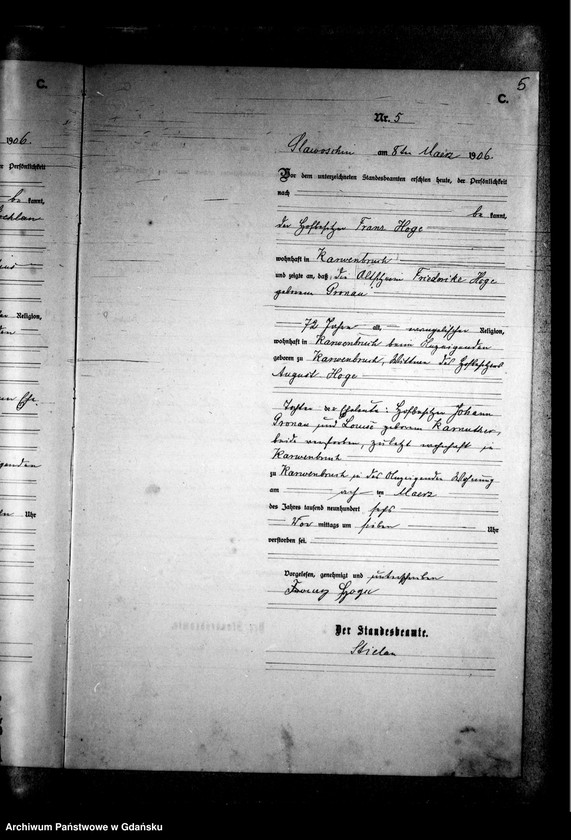 C.
1906.
r Persönlichkeit
be kannt,
er Religion,
en Ehe.
Uhr
5
C.
Nr. 5
Slawoschin am 8ten Maerz 1906.
Vor dem unterzeichneten Standesbeamten erschien heute, der Persönlichkeit
nach
be kannt,
der Hofbesitzer Franz Hoge
wohnhaft in Karwenbruch
und zeigte an, daß die Altsitzerin Friederike Hoge
geborene Gronau
72 Jahre alt, evangelischer Religion,
wohnhaft in Karwenbruch beim Anzeigenden
geboren zu Karwenbruch, Wittwe des Hofbesitzers
August Hoge
Tochter der Eheleute: Hofbesitzer Johann
Gronau und Louise geborene
beide verstorben, zuletzt wohnhaft in
Karwenbruch
zu Karwenbruch in des Anzeigenden Wohnung
am acht ten Maerz
des Jahres tausend neunhundert sechs
Vor mittags um sieben Uhr
verstorben sei.
Vorgelesen, genehmigt und unterschrieben
Franz Hoge
Der Standesbeamte.
Archiwum Państwowe w Gdańsku